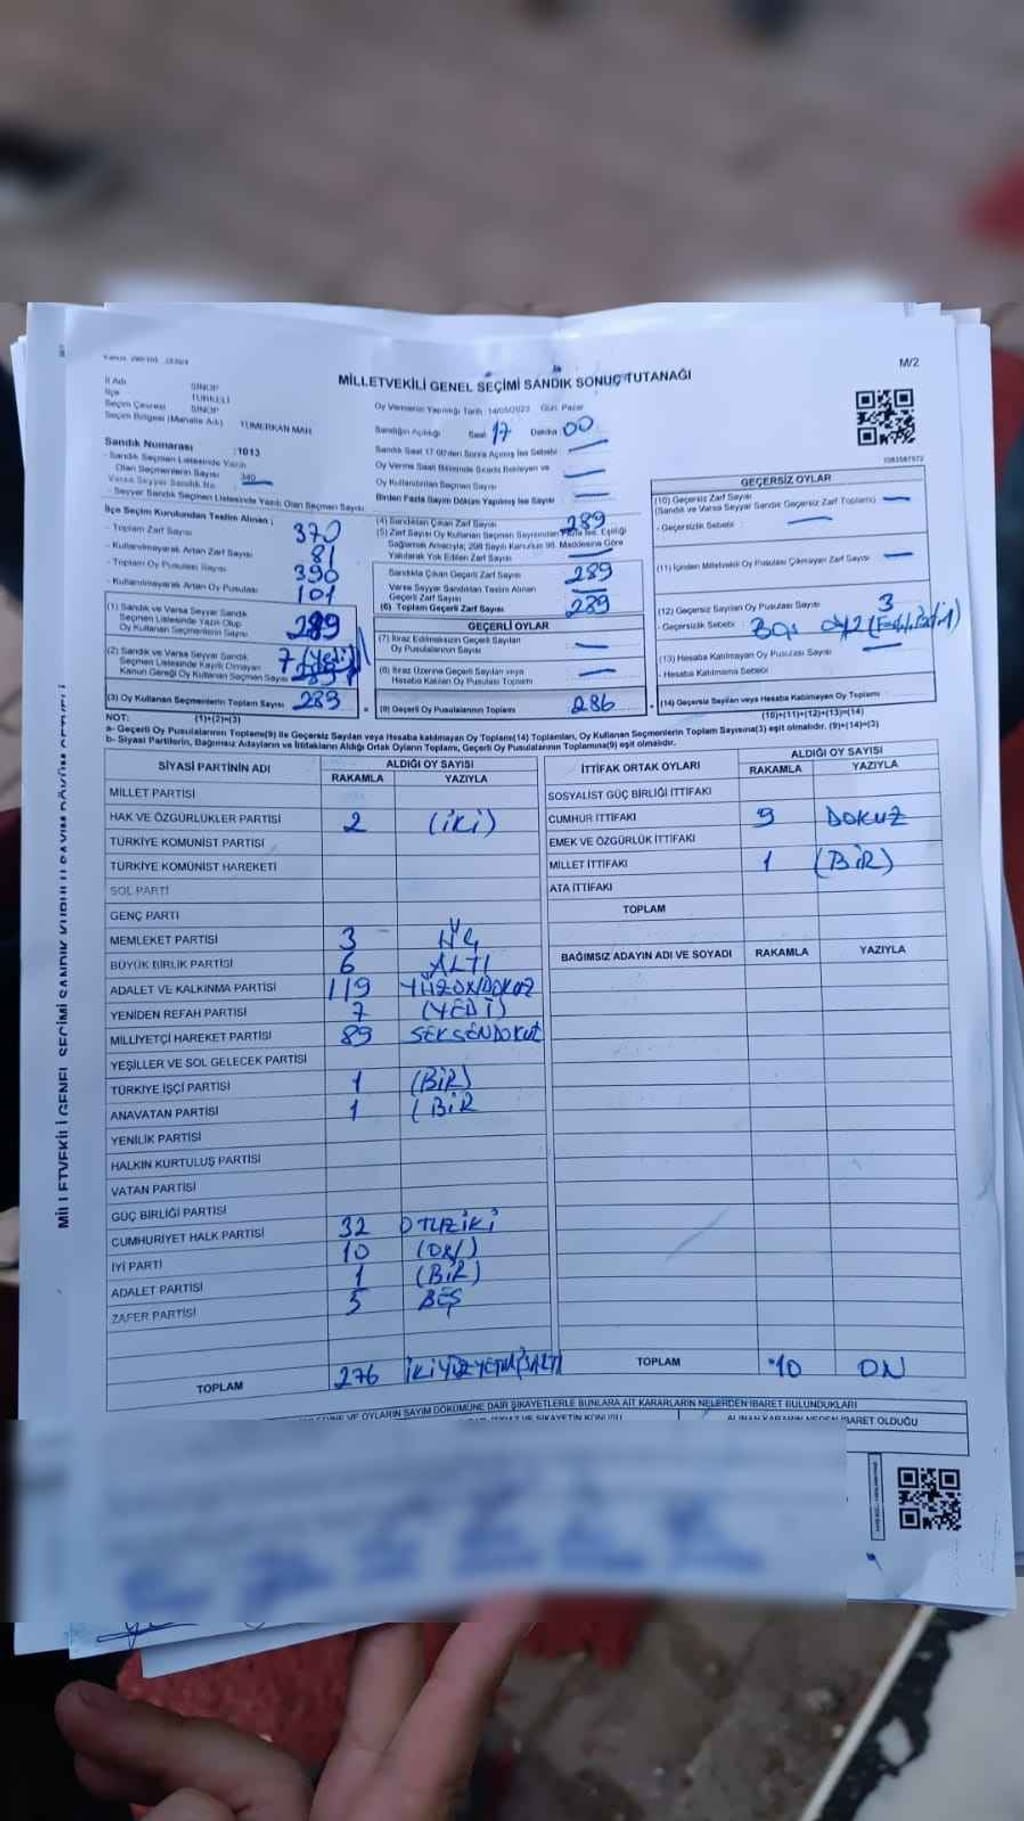 M/2
MİLLETVEKİLİ GENEL SEÇİMİ SANDIK SONUÇ TUTANAĞI
İl Adı SİNOP
İlçe TÜRKELİ
Seçim Çevresi SİNOP
Seçim Bölgesi (Mahalle Adı) TÜMERKAN MAH
Oy Vermenin Yapıldığı Tarih :14/05/2023 Gün: Pazar
Sandığın Açıldığı Saat 17 Dakika 00
Sandık Numarası :1013
- Sandık Seçmen Listesinde Yazılı
Olan Seçmenlerin Sayısı 340
Varsa Seyyar Sandık No
- Seyyar Sandık Seçmen Listesinde Yazılı Olan Seçmen Sayısı
Sandık Saat 17.00'den Sonra Açılmış İse Sebebi
Oy Verme Saati Bitiminde Sırada Bekleyen ve
Oy Kullandırılan Seçmen Sayısı
Birden Fazla Sayım Döküm Yapılmış İse Sayısı
İlçe Seçim Kurulundan Teslim Alınan ;
- Toplam Zarf Sayısı 370
- Kullanılmayarak Artan Zarf Sayısı 81
- Toplam Oy Pusulası Sayısı 390
- Kullanılmayarak Artan Oy Pusulası 101
(1) Sandık ve Varsa Seyyar Sandık
Seçmen Listesinde Yazılı Olup
Oy Kullanan Seçmenlerin Sayısı
(2) Sandık ve Varsa Seyyar Sandık
Seçmen Listesinde Kayıtlı Olmayan
Kanun Gereği Oy Kullanan Seçmen Sayısı 7 (Yedi)
(3) Oy Kullanan Seçmenlerin Toplam Sayısı 289
(1)+(2)=(3)
(4) Sandıktan Çıkan Zarf Sayısı 289
(5) Zarf Sayısı Oy Kullanan Seçmen Sayısından Fazla İse, Eşitliği
Sağlamak Amacıyla; 298 Sayılı Kanun'un 98. Maddesine Göre
Yakılarak Yok Edilen Zarf Sayısı
Sandıkta Çıkan Geçerli Zarf Sayısı 289
Varsa Seyyar Sandıktan Teslim Alınan
Geçerli Zarf Sayısı
(6) Toplam Geçerli Zarf Sayısı 289
GEÇERLİ OYLAR
(7) İtiraz Edilmeksizin Geçerli Sayılan
Oy Pusulalarının Sayısı
(8) İtiraz Üzerine Geçerli Sayılan veya
Hesaba Katılan Oy Pusulası Toplamı
(9) Geçerli Oy Pusulalarının Toplamı 286
GEÇERSİZ OYLAR
(10) Geçersiz Zarf Sayısı
(Sandık ve Varsa Seyyar Sandık Geçersiz Zarf Toplamı)
- Geçersizlik Sebebi
(11) İçinden Milletvekili Oy Pusulası Çıkmayan Zarf Sayısı
(12) Geçersiz Sayılan Oy Pusulası Sayısı 3
- Geçersizlik Sebebi
(13) Hesaba Katılmayan Oy Pusulası Sayısı
- Hesaba Katılmama Sebebi
(14) Geçersiz Sayılan veya Hesaba Katılmayan Oy Toplamı
(10)+(11)+(12)+(13)=(14)
NOT:
a- Geçerli Oy Pusulalarının Toplamı(9) ile Geçersiz Sayılan veya Hesaba katılmayan Oy Toplamı(14) Toplamları, Oy Kullanan Seçmenlerin Toplam Sayısına(3) eşit olmalıdır. (9)+(14)=(3)
b- Siyasi Partilerin, Bağımsız Adayların ve İttifakların Aldığı Ortak Oyların Toplamı, Geçerli Oy Pusulalarının Toplamına(9) eşit olmalıdır.
SİYASİ PARTİNİN ADI ALDIĞI OY SAYISI
RAKAMLA YAZIYLA
MİLLET PARTİSİ
HAK VE ÖZGÜRLÜKLER PARTİSİ 2 (İKİ)
TÜRKİYE KOMÜNİST PARTİSİ
TÜRKİYE KOMÜNİST HAREKETİ
SOL PARTİ
GENÇ PARTİ
MEMLEKET PARTİSİ 3 ÜÇ
BÜYÜK BİRLİK PARTİSİ 6 ALTI
ADALET VE KALKINMA PARTİSİ 119 YÜZONDOKUZ
YENİDEN REFAH PARTİSİ 7 (YEDİ)
MİLLİYETÇİ HAREKET PARTİSİ 89 SEKSENDOKUZ
YEŞİLLER VE SOL GELECEK PARTİSİ
TÜRKİYE İŞÇİ PARTİSİ 1 (BİR)
ANAVATAN PARTİSİ 1 (BİR
YENİLİK PARTİSİ
HALKIN KURTULUŞ PARTİSİ
VATAN PARTİSİ
GÜÇ BİRLİĞİ PARTİSİ
CUMHURİYET HALK PARTİSİ 32 OTUZİKİ
İYİ PARTİ 10 (ON)
ADALET PARTİSİ 1 (BİR)
ZAFER PARTİSİ 5 BEŞ
TOPLAM 276 İKİYÜZYETMİŞALTI
İTTİFAK ORTAK OYLARI ALDIĞI OY SAYISI
RAKAMLA YAZIYLA
SOSYALİST GÜÇ BİRLİĞİ İTTİFAKI
CUMHUR İTTİFAKI 9 DOKUZ
EMEK VE ÖZGÜRLÜK İTTİFAKI
MİLLET İTTİFAKI 1 (BİR)
ATA İTTİFAKI
TOPLAM
BAĞIMSIZ ADAYIN ADI VE SOYADI RAKAMLA YAZIYLA
TOPLAM 10 ON
VE OYLARIN SAYIM DÖKÜMÜNE DAİR ŞİKAYETLERLE BUNLARA AİT KARARLARIN NELERDEN İBARET BULUNDUKLARI